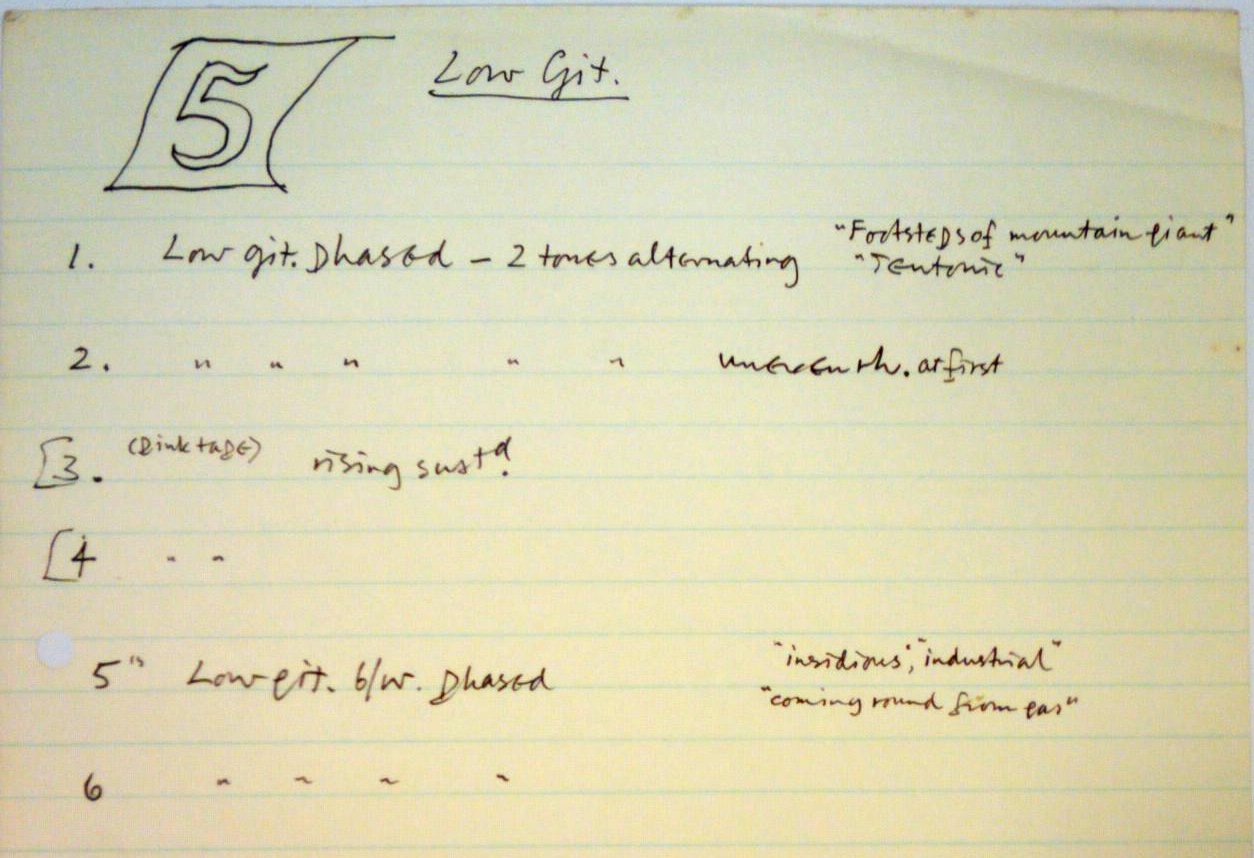 5
Low Git.
1. Low git. phased – 2 tones alternating "Footsteps of mountain giant"
"Teutonic"
2. " " " " " at first
[3. (Pink tape) rising sustd.
[4 " "
5" Low git. b/w. phased "insidious", "industrial"
"coming round from gas"
6 " " " "